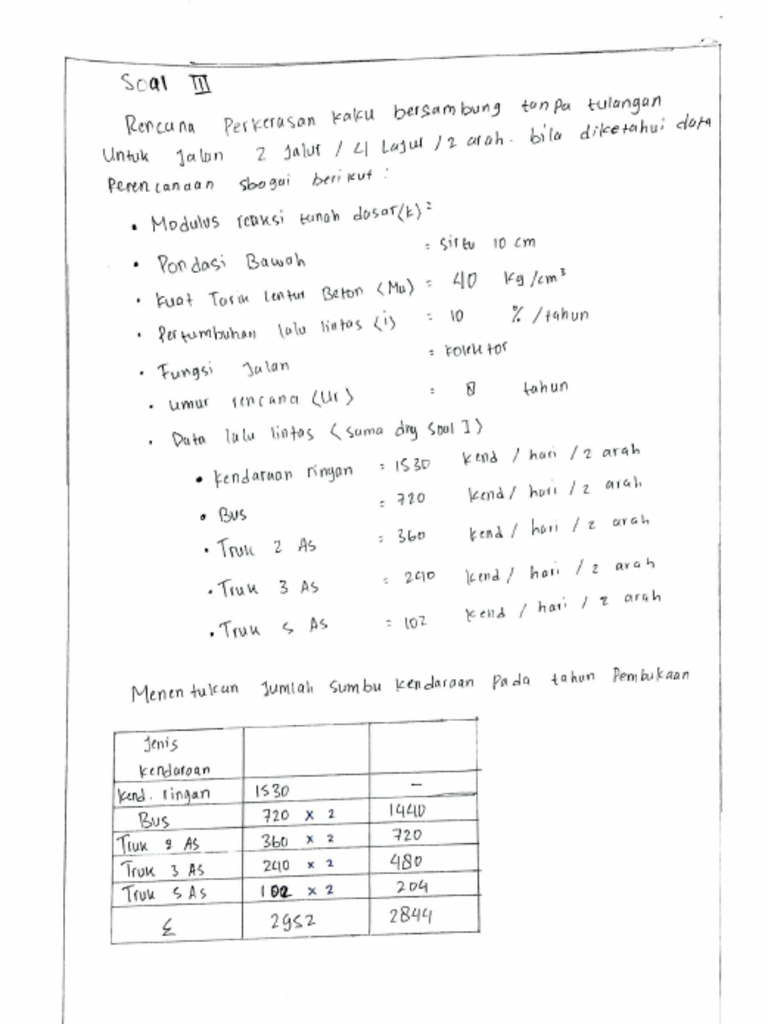 Soal III
Rencana Perkerasan kaku bersambung tanpa tulangan
Untuk Jalan 2 Jalur / 4 Lajur / 2 arah. bila diketahui data
Perencanaan sbagai berikut :
• Modulus reaksi tanah dasar (k) =
• Pondasi Bawah = Sirtu 10 cm
• Kuat Tarik lentur Beton (Mu) = 40 kg/cm³
• Pertumbuhan lalu lintas (i) = 10 % /tahun
• Fungsi Jalan = Kolektor
• Umur rencana (Ur) : 8 tahun
• Data lalu lintas (sama dng Soal I)
• kendaraan ringan = 1530 kend / hari / 2 arah
• Bus = 720 kend / hari / 2 arah
• Truk 2 As = 360 kend / hari / 2 arah
• Truk 3 As = 240 kend / hari / 2 arah
• Truk 5 As = 102 kend / hari / 2 arah
Menentukan Jumlah Sumbu kendaraan pada tahun Pembukaan
Jenis
kendaraan
kend. ringan 1530 –
Bus 720 x 2 1440
Truk 2 As 360 x 2 720
Truk 3 As 240 x 2 480
Truk 5 As 102 x 2 204
Σ 2952 2844